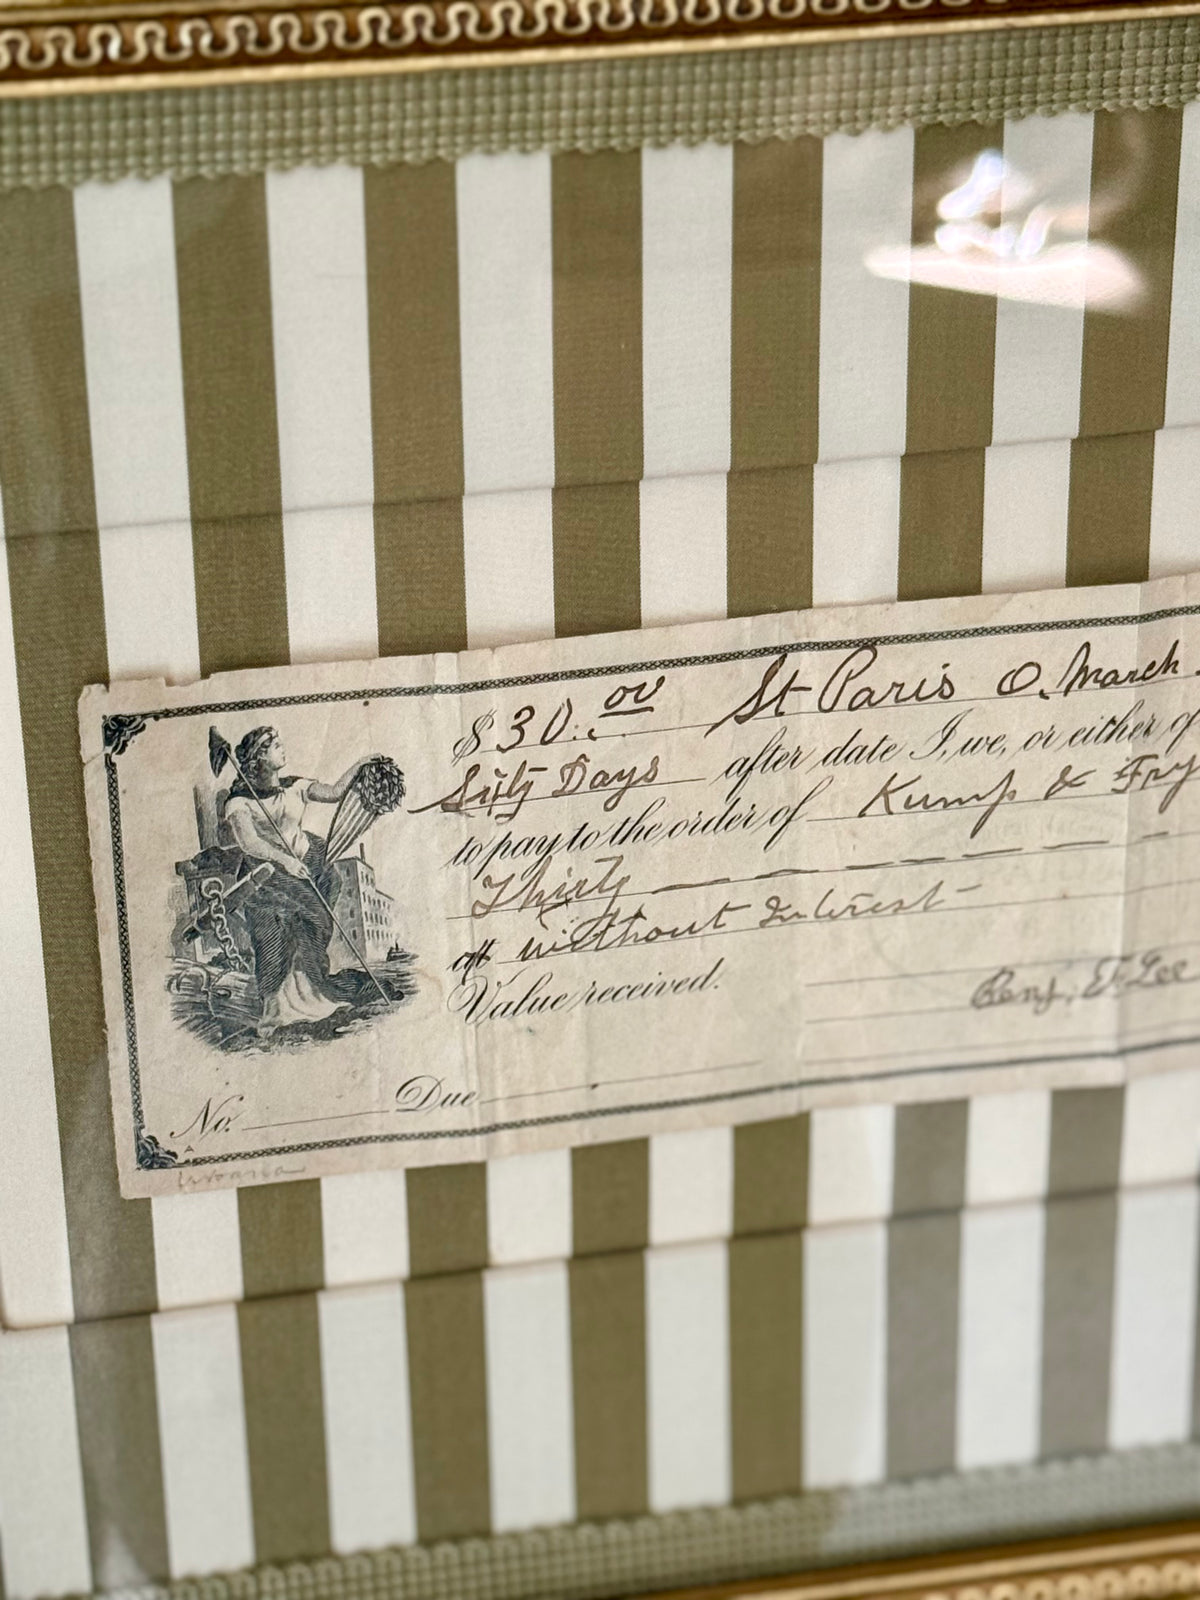 $30.00 St Paris O. March
Sixty Days after date I, we, or either of
to pay to the order of Kump & Fry
Thirty
at without Interest
Value received.
Benj. F. Lee
No. Due
Urbana